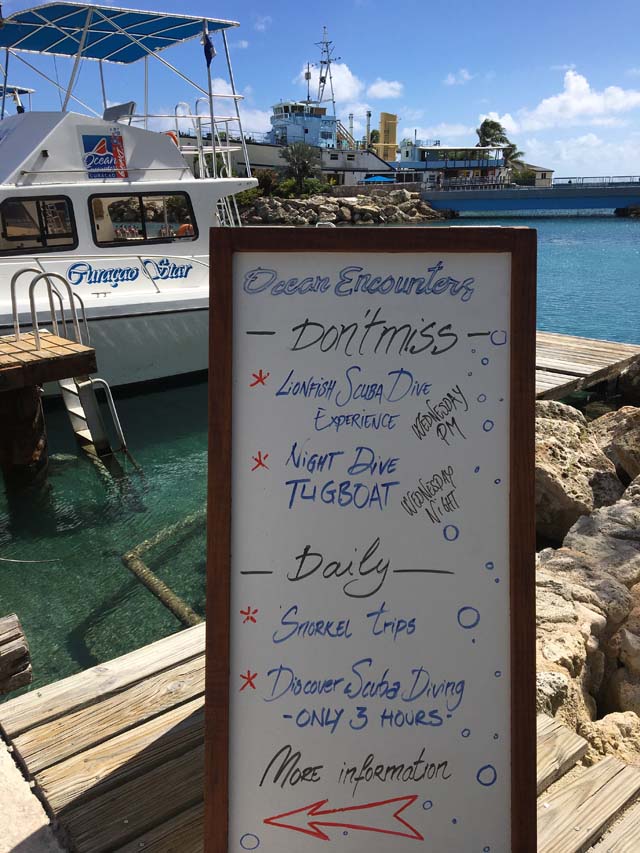 Ocean
CURAÇAO
Curaçao Star
Ocean Encounters
Don't miss
* Lionfish Scuba Dive
Experience
Wednesday
PM
* Night Dive
Tugboat
Wednesday
Night
Daily
* Snorkel trips
* Discover Scuba Diving
- ONLY 3 HOURS -
More information